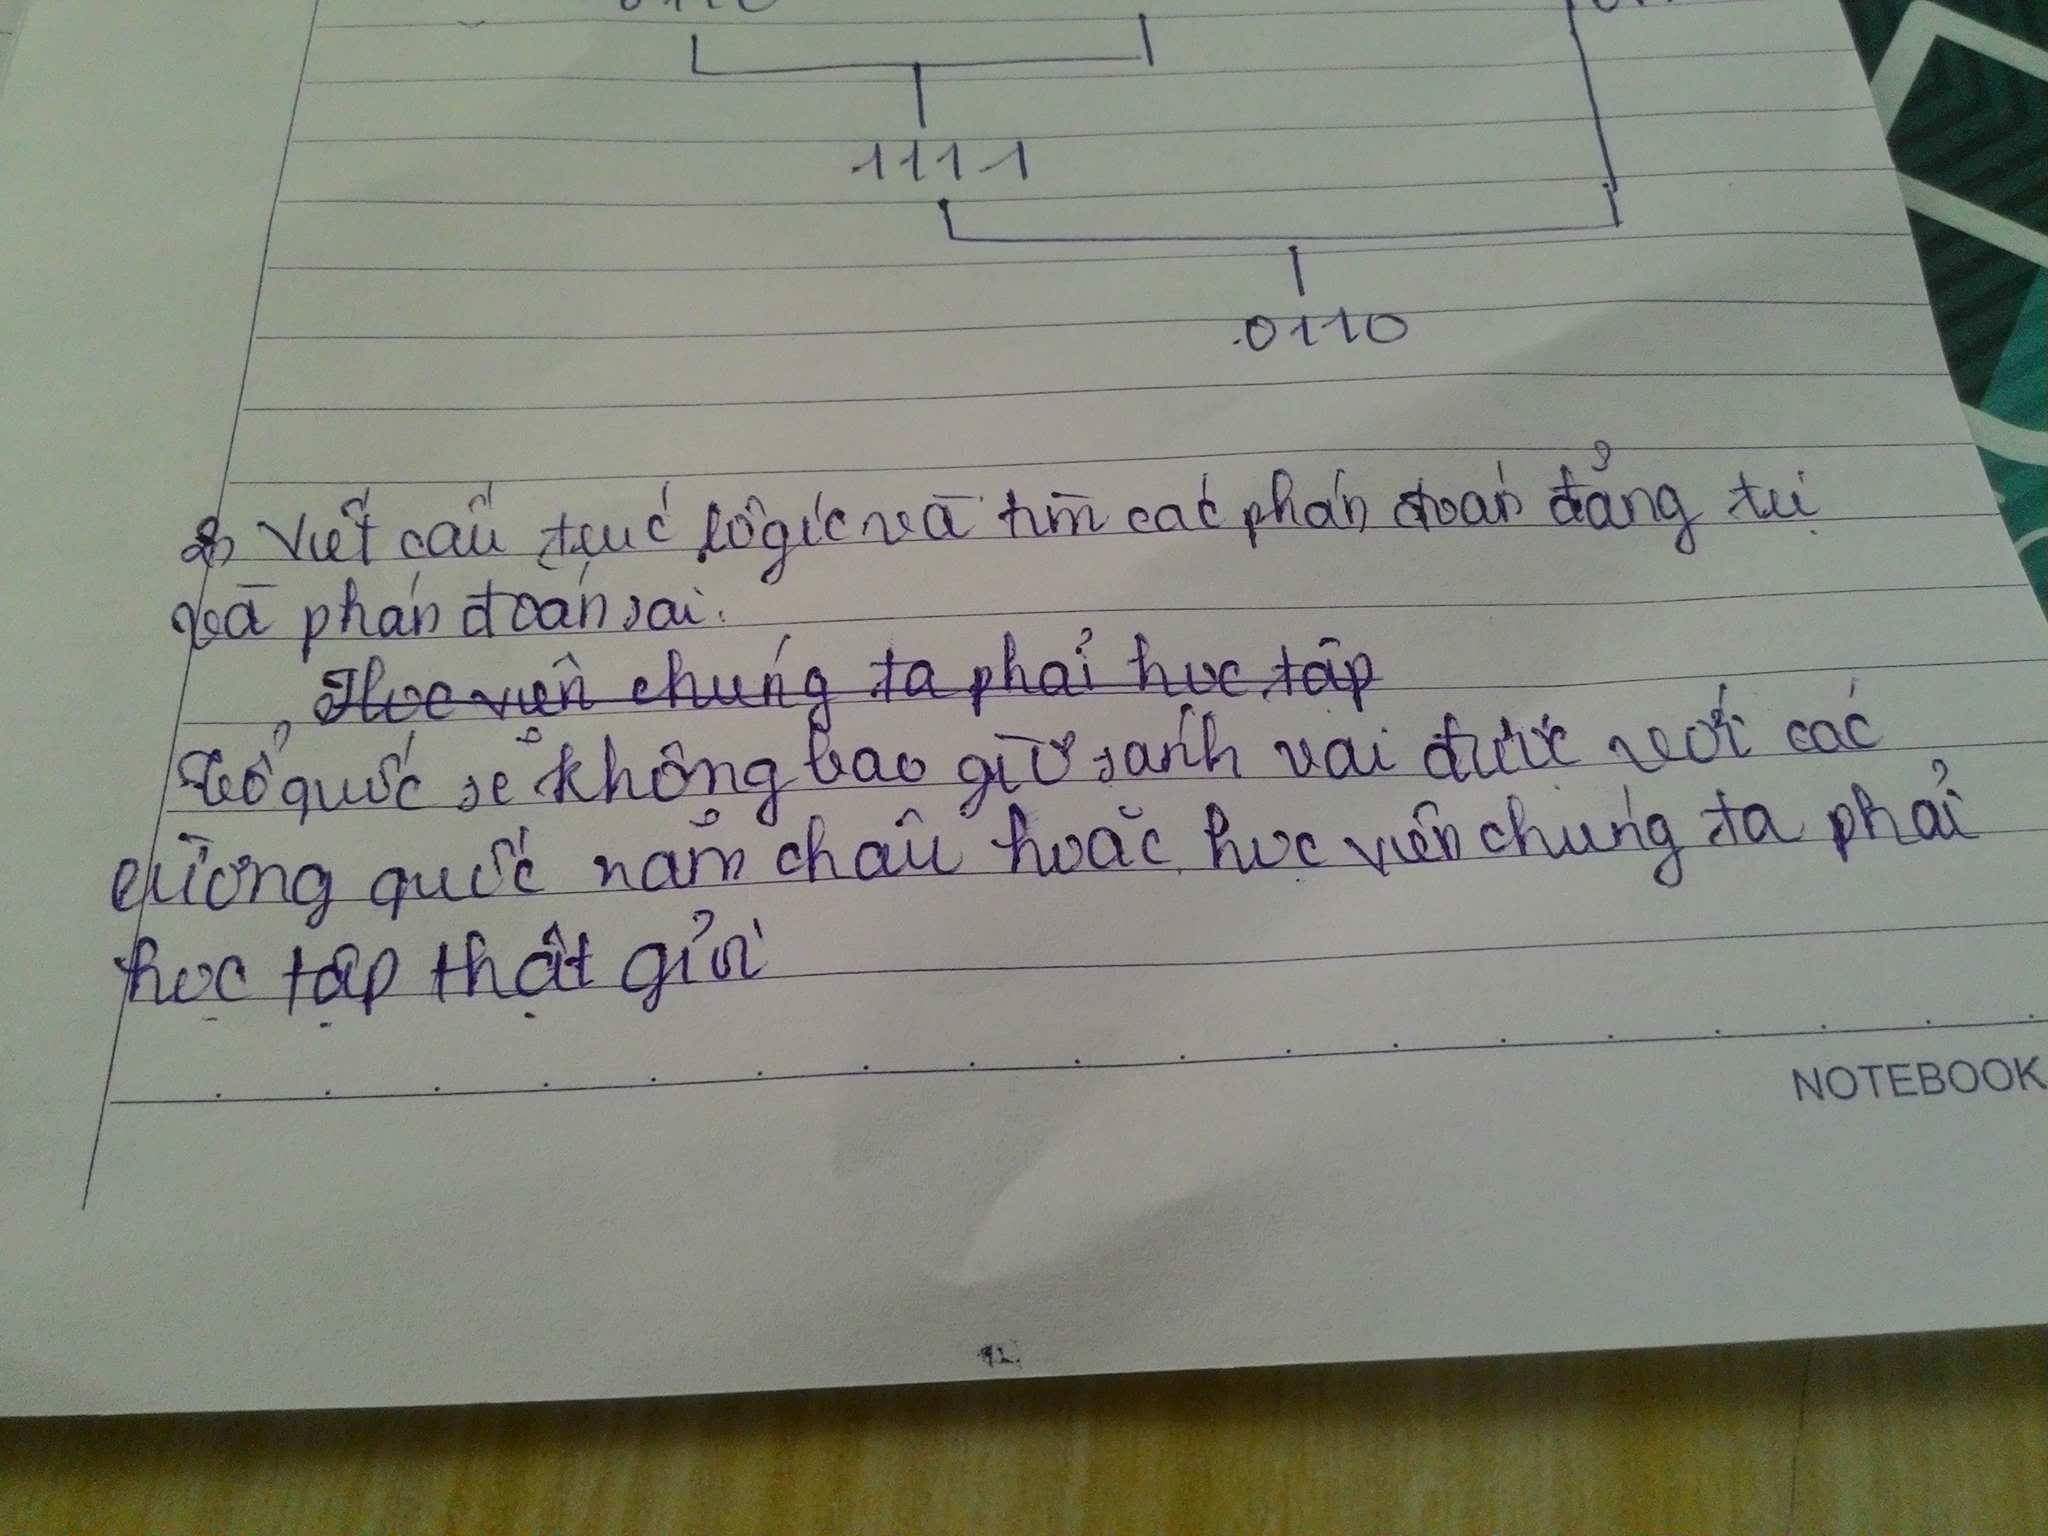 1111
0110
2) Viết cấu trúc lôgic và tìm các phán đoán đẳng trị
và phán đoán sai.
Học viên chúng ta phải học tập
Tổ quốc sẽ không bao giờ sánh vai được với các
cường quốc năm châu hoặc học viên chúng ta phải
học tập thật giỏi
NOTEBOOK